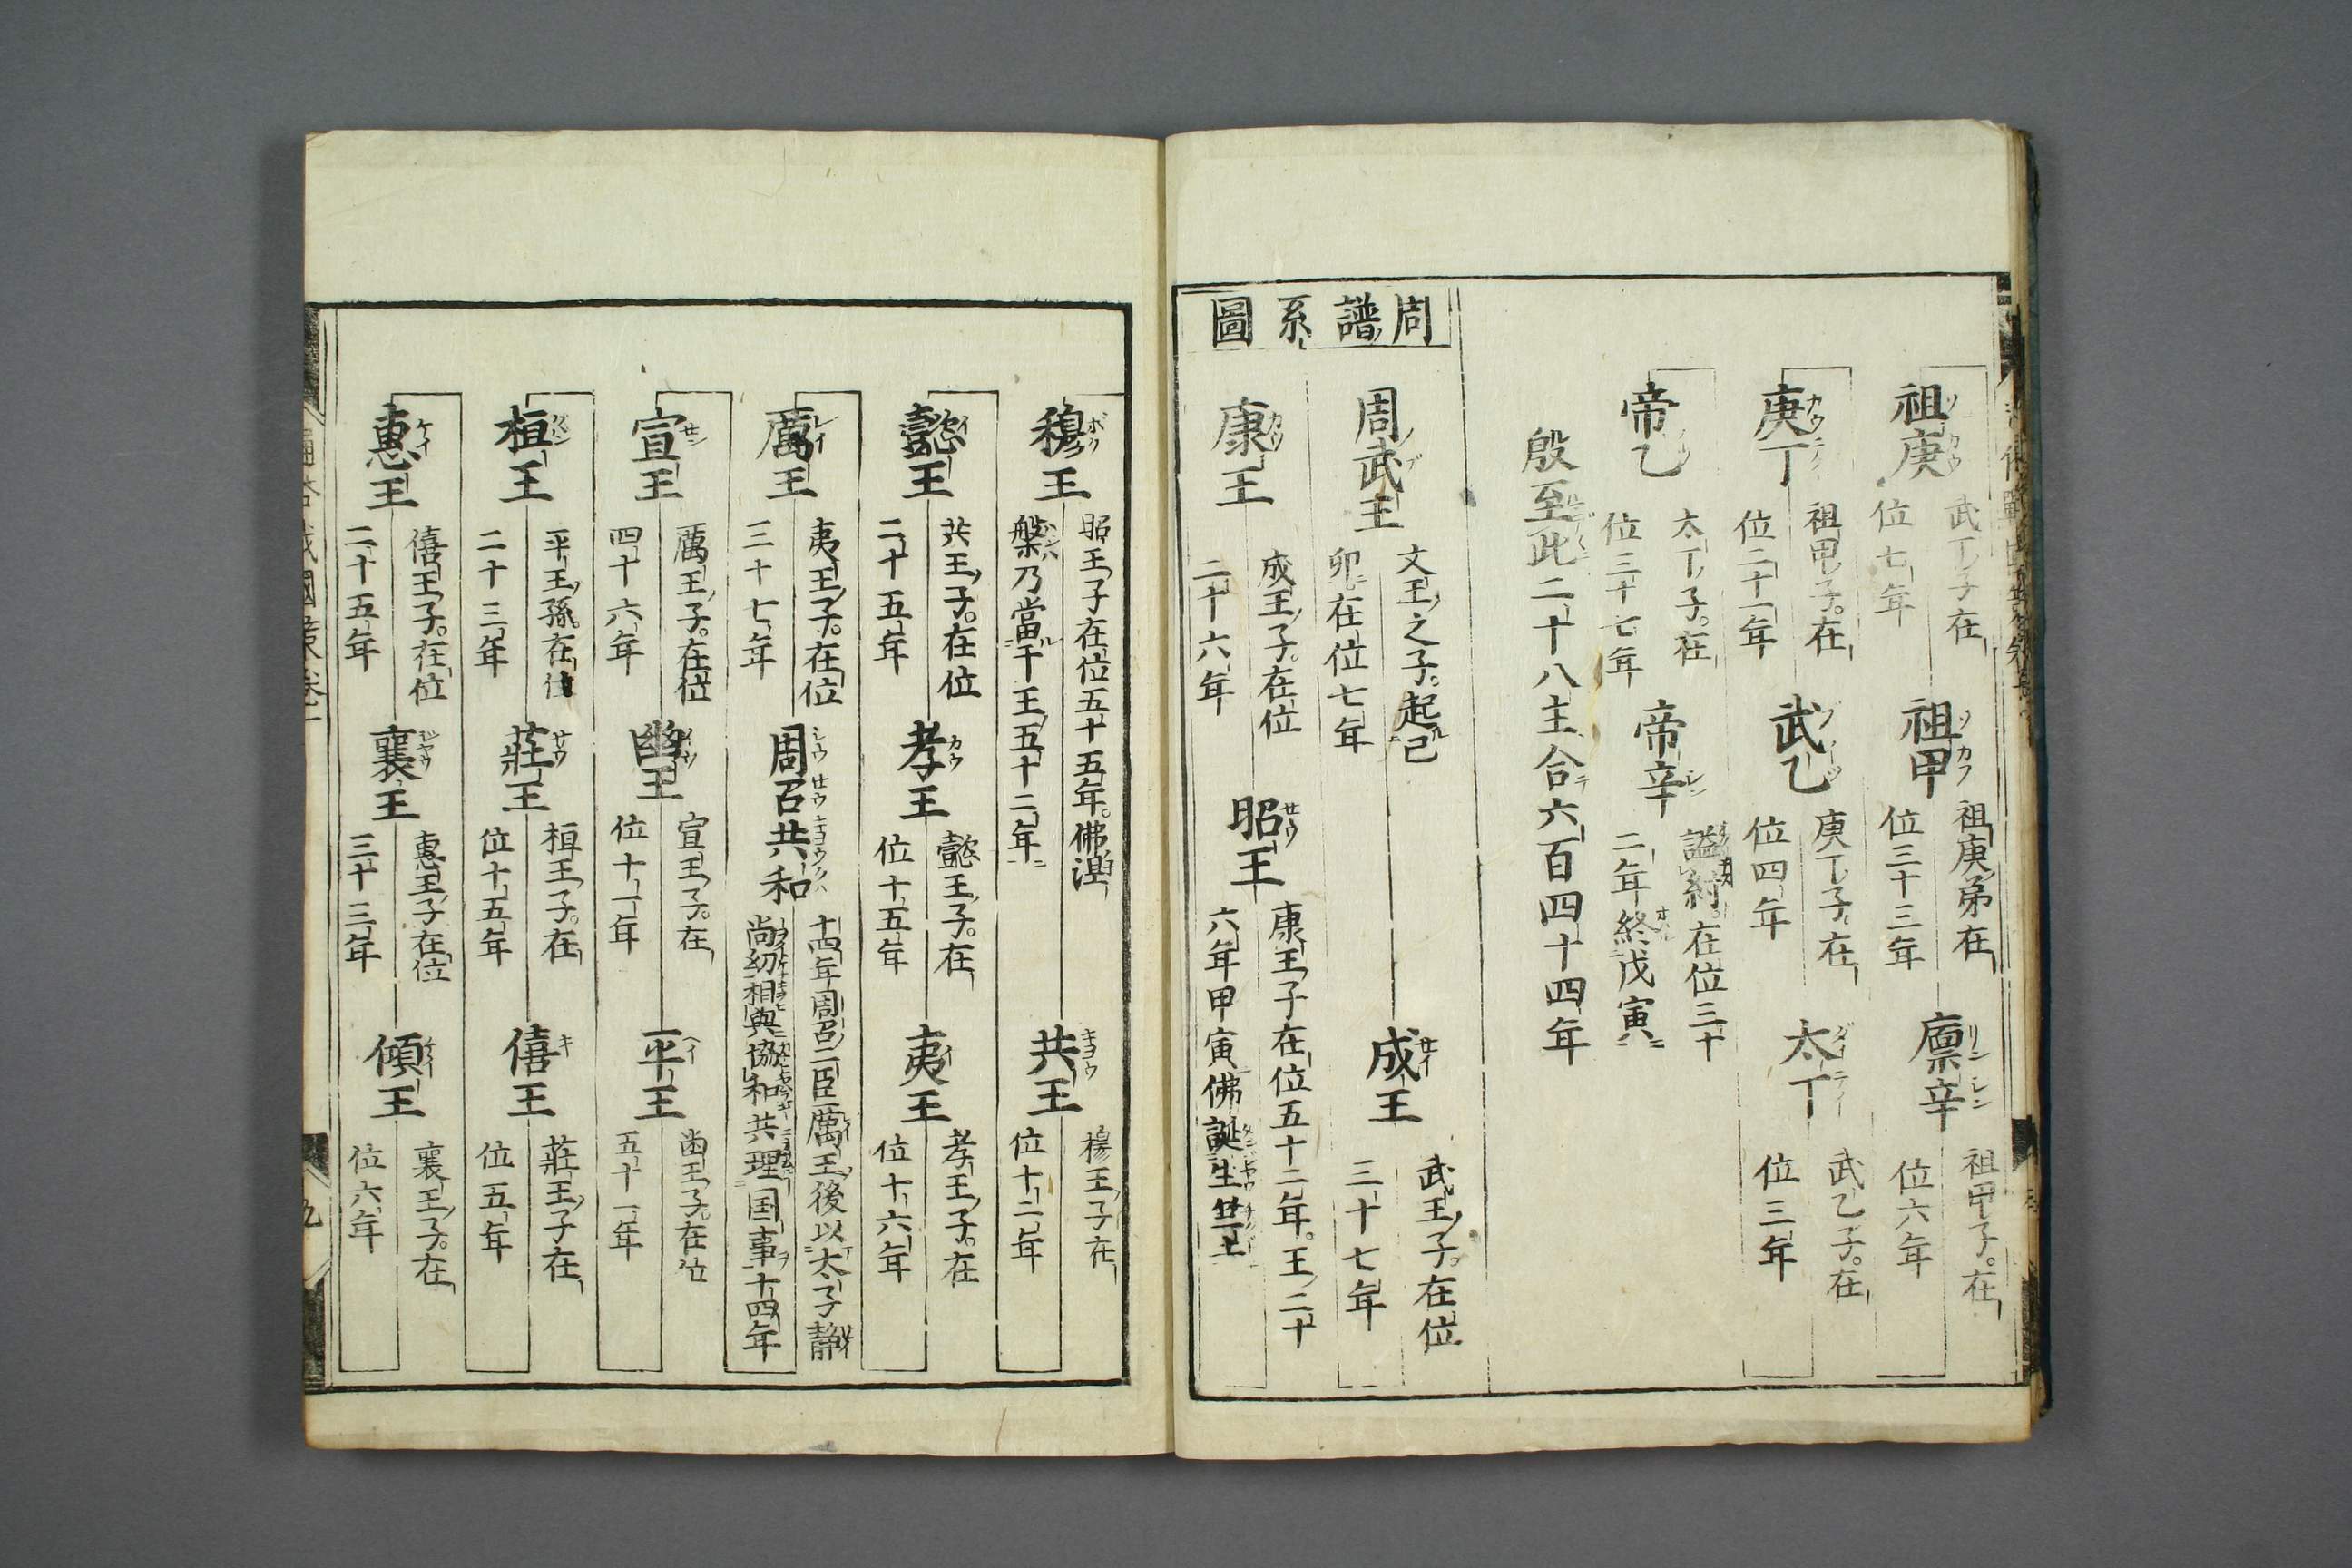 祖庚 武丁子在位七年
祖甲 祖庚弟在位三十三年
廪辛 祖甲子在位六年
庚丁 祖甲子在位二十一年
武乙 庚丁子在位四年
太丁 武乙子在位三年
帝乙 太丁子在位三十七年
帝辛 謚紂在位三十二年終戊寅
殷至此二十八主合六百四十四年
周譜系圖
周武王 文王之子起己卯在位七年
成王 武王子在位三十七年
康王 成王子在位二十六年
昭王 康王子在位五十二年王二十六年甲寅佛誕生竺土
穆王 昭王子在位五十五年佛涅槃乃當于王五十二年
共王 穆王子在位十二年
懿王 共王子在位二十五年
孝王 懿王子在位十五年
夷王 孝王子在位十六年
厲王 夷王子在位三十七年
周召共和 十四年周召二臣厲王後以太子靜尚幼相與協和共理国事十四年
宣王 厲王子在位四十六年
幽王 宣王子在位十一年
平王 幽王子在位五十一年
桓王 平王孫在位二十三年
莊王 桓王子在位十五年
僖王 莊王子在位五年
惠王 僖王子在位二十五年
襄王 惠王子在位三十三年
傾王 襄王子在位六年
九